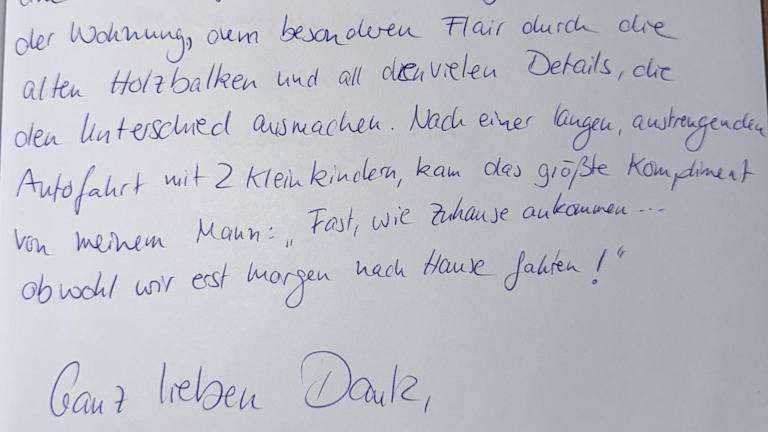 der Wohnung, dem besonderen Flair durch die
alten Holzbalken und all den vielen Details, die
den Unterschied ausmachen. Nach einer langen, anstrengenden
Autofahrt mit 2 Kleinkindern, kam das größte Kompliment
von meinem Mann: „Fast, wie Zuhause ankommen...
obwohl wir erst morgen nach Hause fahren!“
Ganz lieben Dank,